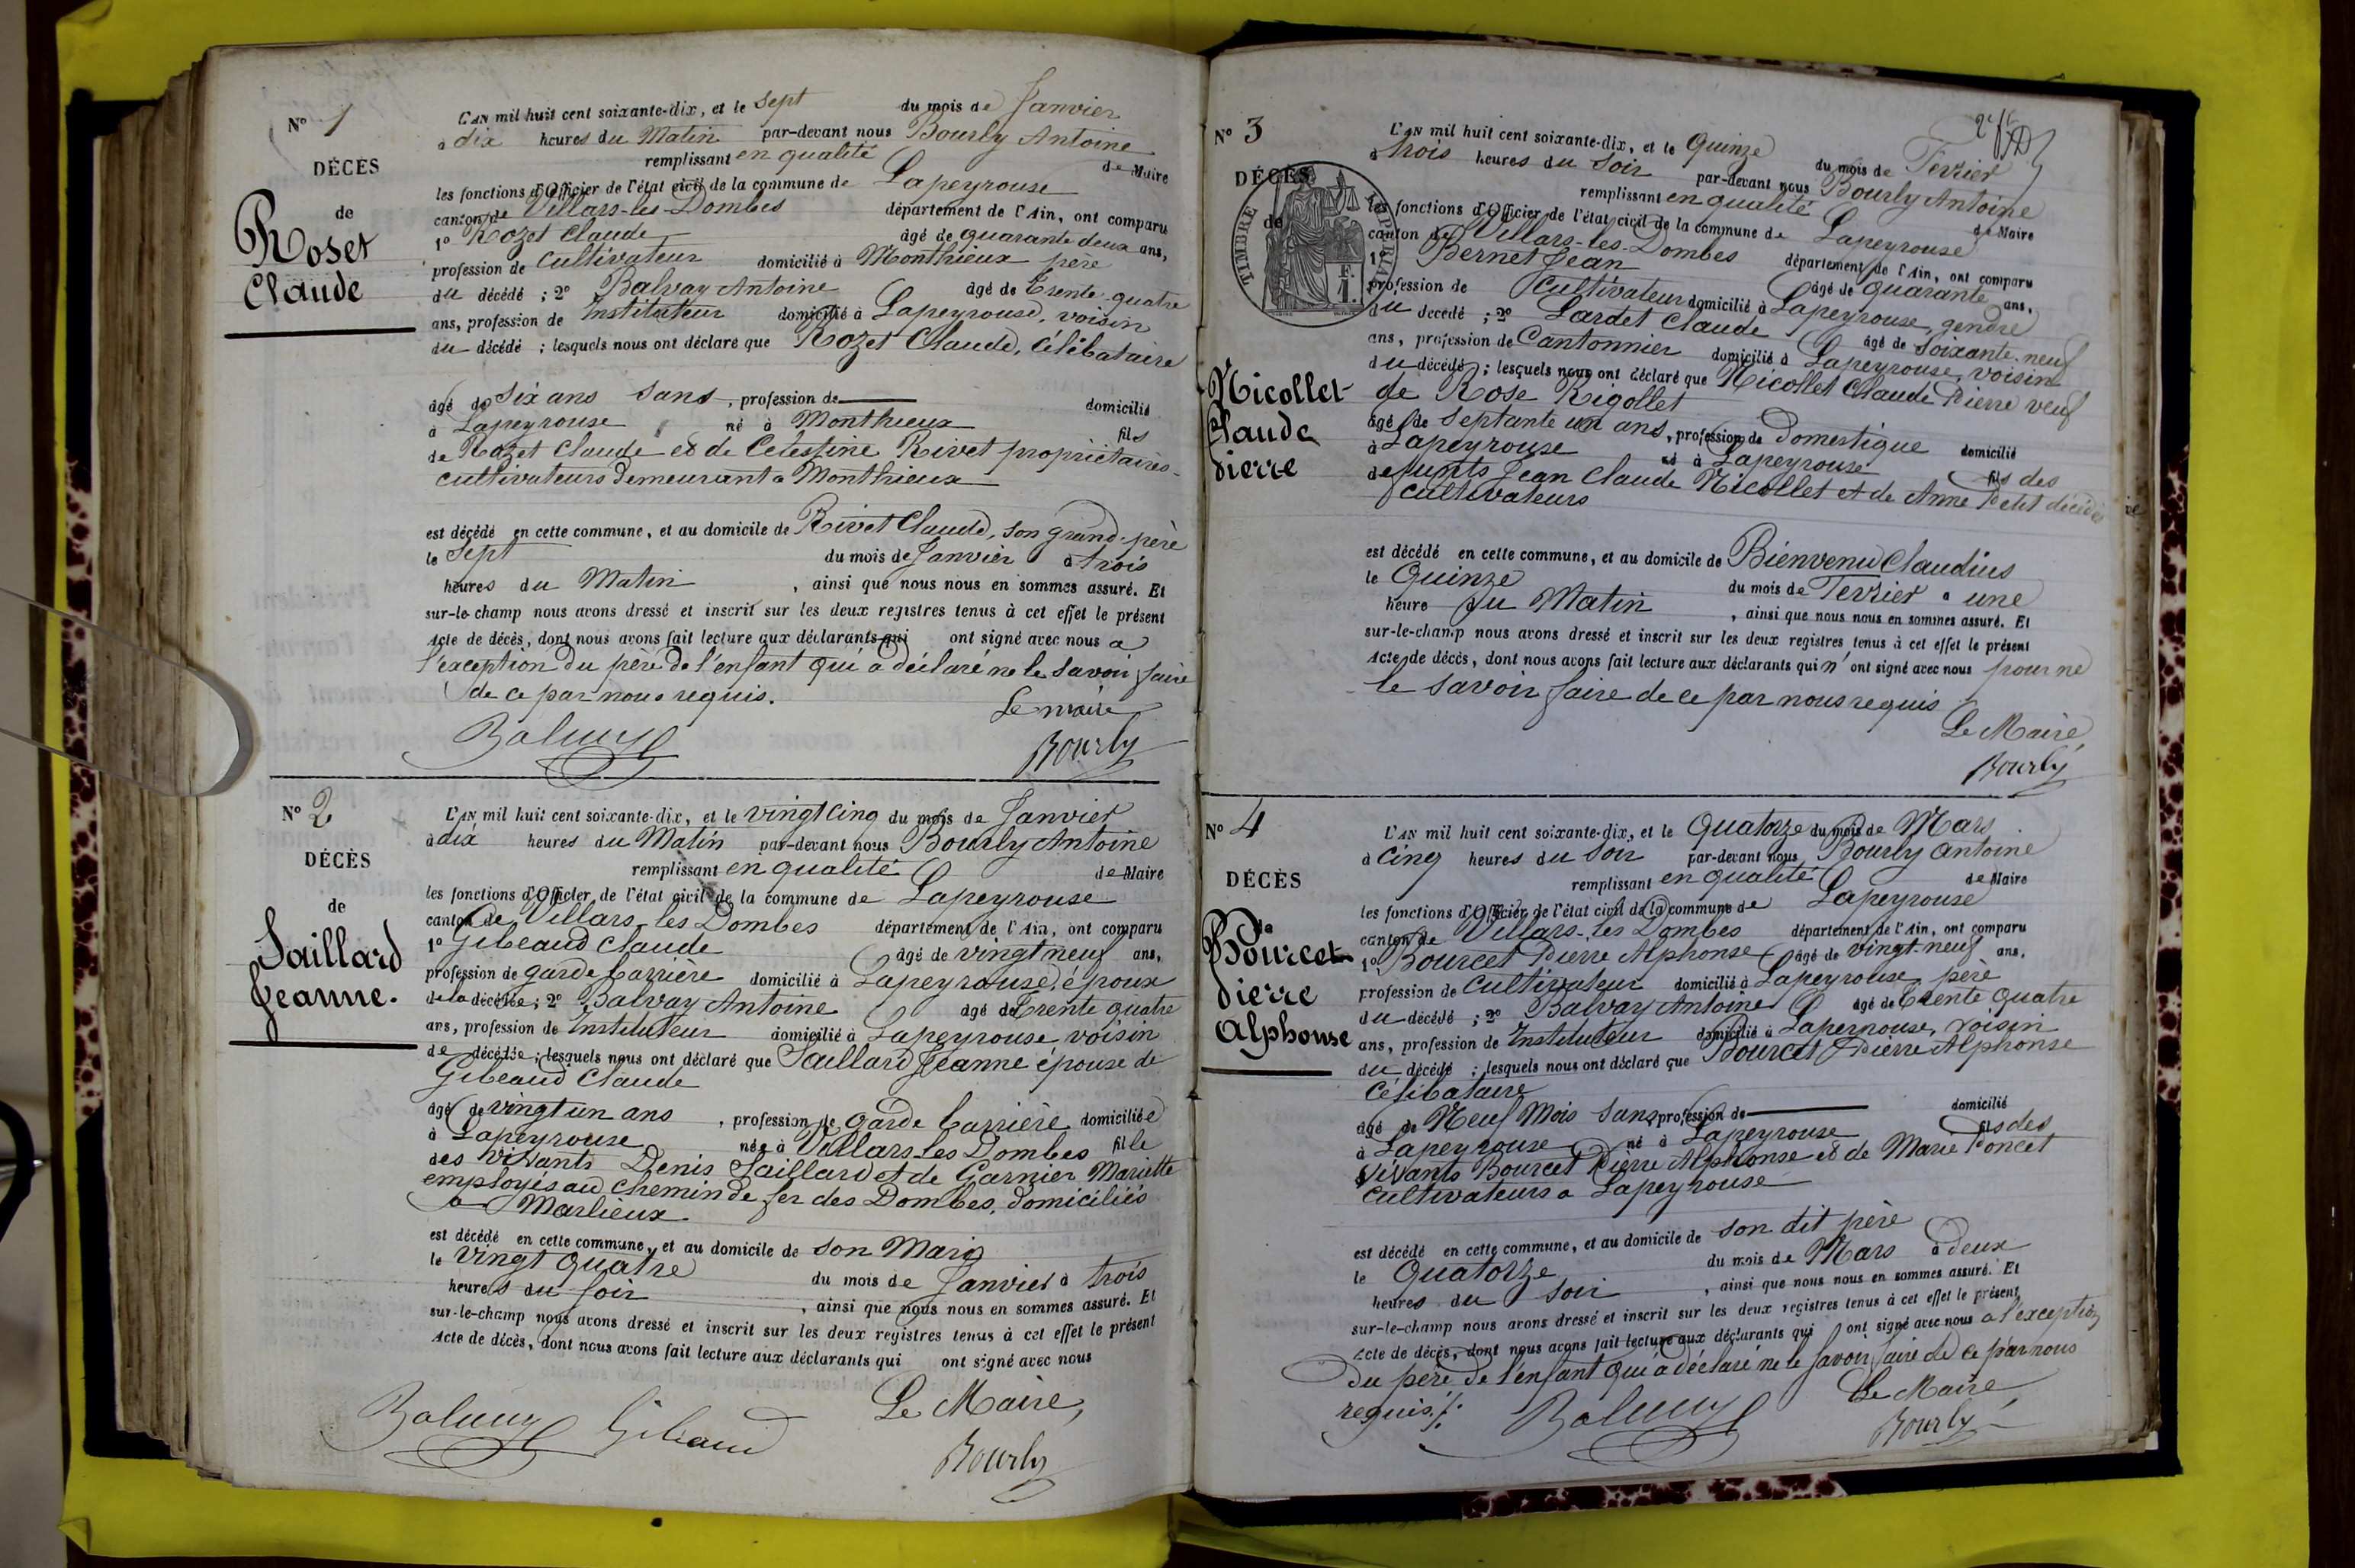 N° 1
DÉCÈS
de
Roset
Claude
L'AN mil huit cent soixante-dix, et le sept du mois de Janvier
à dix heures du Matin par-devant nous Bourly Antoine
remplissant en qualité de Maire
les fonctions d'Officier de l'état civil de la commune de Lapeyrouse
canton de Villars-les-Dombes département de l'Ain, ont comparu
1° Rozet Claude âgé de quarante deux ans,
profession de Cultivateur domicilié à Monthieux père
du décédé ; 2° Balvay Antoine âgé de Trente quatre
ans, profession de Instituteur domicilié à Lapeyrouse, voisin
du décédé ; lesquels nous ont déclaré que Rozet Claude, Célibataire
âgé de Six ans Sans, profession de domicilié
à Lapeyrouse né à Monthieux fils
de Rozet Claude et de Celestine Rivet propriétaires-
cultivateurs demeurant a Monthieux
est décédé en cette commune, et au domicile de Rivet Claude, son grand-père
le Sept du mois de Janvier à trois
heures du Matin, ainsi que nous nous en sommes assuré. Et
sur-le-champ nous avons dressé et inscrit sur les deux registres tenus à cet effet le présent
Acte de décès, dont nous avons fait lecture aux déclarants qui ont signé avec nous a
l'exception du père de l'enfant qui a déclaré ne le savoir faire
de ce par nous requis.
Le maire
Balvay Bourly
N° 2
DÉCÈS
de
Saillard
Jeanne.
L'AN mil huit cent soixante-dix, et le vingt cinq du mois de Janvier
à dix heures du Matin par-devant nous Bourly Antoine
remplissant en qualité de Maire
les fonctions d'Officier de l'état civil de la commune de Lapeyrouse
canton de Villars les Dombes département de l'Ain, ont comparu
1° Gibeaud Claude âgé de vingt neuf ans,
profession de garde barrière domicilié à Lapeyrouse, époux
de la décédée ; 2° Balvay Antoine âgé de Trente quatre
ans, profession de Instituteur domicilié à Lapeyrouse voisin
de décédée ; lesquels nous ont déclaré que Saillard Jeanne épouse de
Gibeaud Claude
âgé de vingt un ans, profession de garde barrière domiciliée
à Lapeyrouse née à Villars les Dombes fille
des vivants Denis Saillard et de Garnier Mariette
employés au chemin de fer des Dombes, domiciliés
a Marlieux
est décédé en cette commune, et au domicile de son Mari
le vingt quatre du mois de Janvier à trois
heures du soir, ainsi que nous nous en sommes assuré. Et
sur-le-champ nous avons dressé et inscrit sur les deux registres tenus à cet effet le présent
Acte de décès, dont nous avons fait lecture aux déclarants qui ont signé avec nous
Le Maire,
Balvay Gibeaud Bourly
N° 3
DÉCÈS
de
TIMBRE IMPÉRIAL
F.
1.
Nicollet
Claude
Pierre
L'AN mil huit cent soixante-dix, et le Quinze du mois de Fevrier
à trois heures du Soir par-devant nous Bourly Antoine
remplissant en qualité de Maire
les fonctions d'Officier de l'état civil de la commune de Lapeyrouse
canton de Villars-les-Dombes département de l'Ain, ont comparu
1° Bernet Jean âgé de quarante ans,
profession de Cultivateur domicilié à Lapeyrouse, gendre
du décédé ; 2° Lardet Claude âgé de Soixante-neuf
ans, profession de Cantonnier domicilié à Lapeyrouse, voisin
du décédé ; lesquels nous ont déclaré que Nicollet Claude Pierre veuf
de Rose Rigollet
âgé de septante un ans, profession de Domestique domicilié
à Lapeyrouse né à Lapeyrouse fils des
défunts Jean Claude Nicollet et de Anne Petit décédés
cultivateurs
est décédé en cette commune, et au domicile de Bienvenu Claudius
le Quinze du mois de Fevrier à une
heure du Matin, ainsi que nous nous en sommes assuré. Et
sur-le-champ nous avons dressé et inscrit sur les deux registres tenus à cet effet le présent
Acte de décès, dont nous avons fait lecture aux déclarants qui n'ont signé avec nous pour ne
le savoir faire de ce par nous requis
Le Maire,
Bourly
N° 4
DÉCÈS
de
Bourcet
Pierre
Alphonse
L'AN mil huit cent soixante-dix, et le Quatorze du mois de Mars
à Cinq heures du Soir par-devant nous Bourly Antoine
remplissant en qualité de Maire
les fonctions d'Officier de l'état civil de la commune de Lapeyrouse
canton de Villars-les Dombes département de l'Ain, ont comparu
1° Bourcet Pierre Alphonse âgé de vingt-neuf ans,
profession de Cultivateur domicilié à Lapeyrouse, père
du décédé ; 2° Balvay Antoine âgé de Trente quatre
ans, profession de Instituteur domicilié à Lapeyrouse, voisin
du décédé ; lesquels nous ont déclaré que Bourcet Pierre Alphonse
Célibataire
âgé de Neuf Mois Sans profession de domicilié
à Lapeyrouse né à Lapeyrouse fils des
Vivants Bourcet Pierre Alphonse et de Marie Poncet
Cultivateurs a Lapeyrouse
est décédé en cette commune, et au domicile de son dit père
le Quatorze du mois de Mars à deux
heures du Soir, ainsi que nous nous en sommes assuré. Et
sur-le-champ nous avons dressé et inscrit sur les deux registres tenus à cet effet le présent
Acte de décès, dont nous avons fait lecture aux déclarants qui ont signé avec nous a l'exception
du père de l'enfant qui a déclaré ne le savoir faire de ce par nous
requis ./.
Le Maire
Balvay Bourly